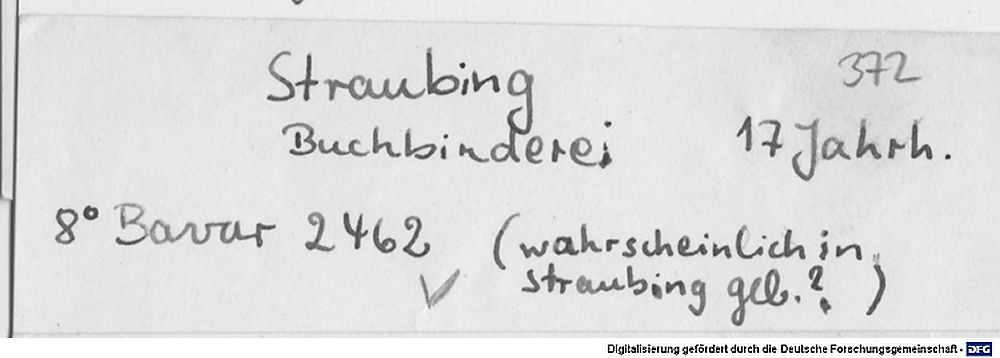 372
Straubing
Buchbinderei 17 Jahrh.
8° Bavar 2462 (wahrscheinlich in
✓ straubing geb.?)
Digitalisierung gefördert durch die Deutsche Forschungsgemeinschaft - DFG